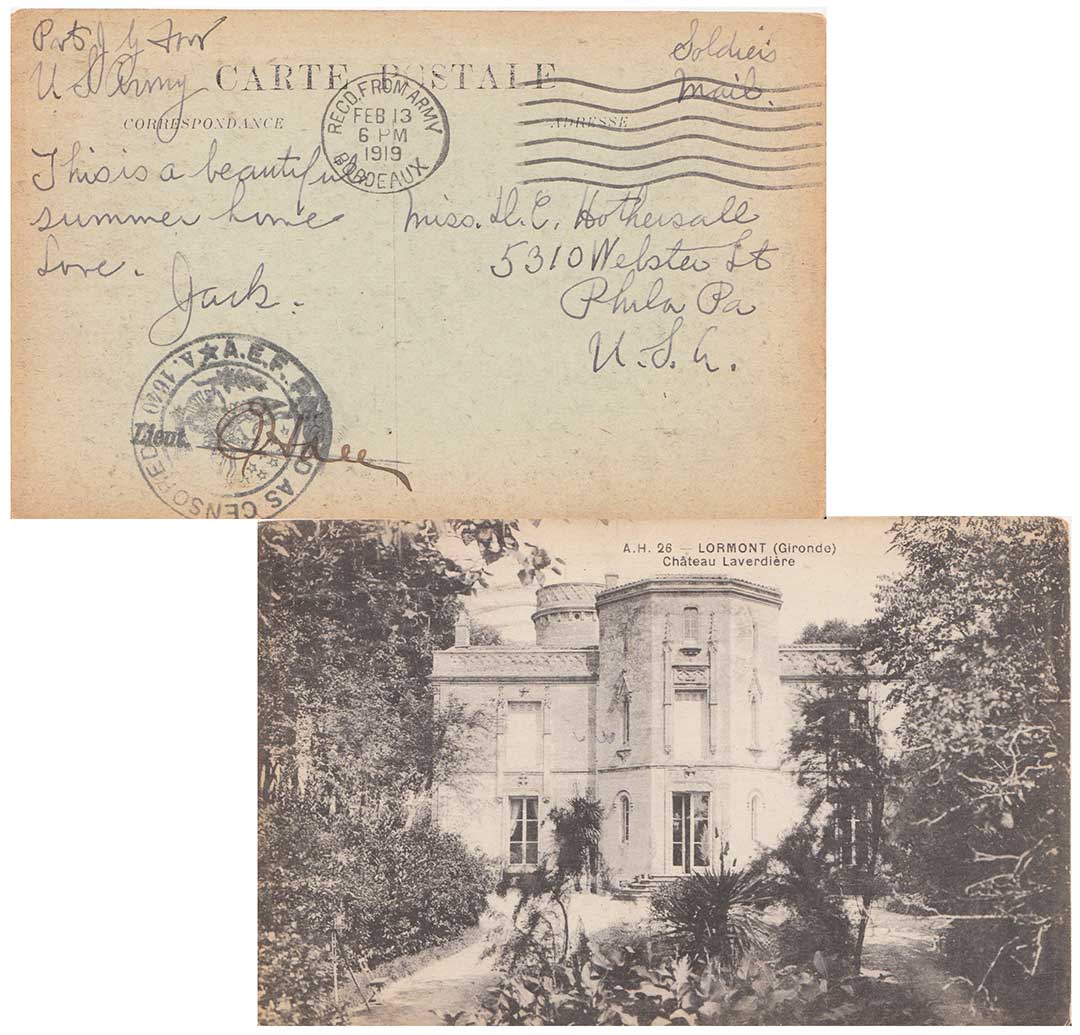 Pvt J G
U S Army
CARTE POSTALE
Soldier's
Mail.
CORRESPONDANCE
ADRESSE
RECD. FROM ARMY
FEB 13
6 PM
1919
BORDEAUX
This is a beautiful
summer home
Love.
Jack.
Miss. H. E. Hothersall
5310 Webster St
Phila Pa
U. S. A.
A. 1640 ★ A.E.F. PASSED AS CENSORED
Lieut.
A.H. 26 — LORMONT (Gironde)
Château Laverdière